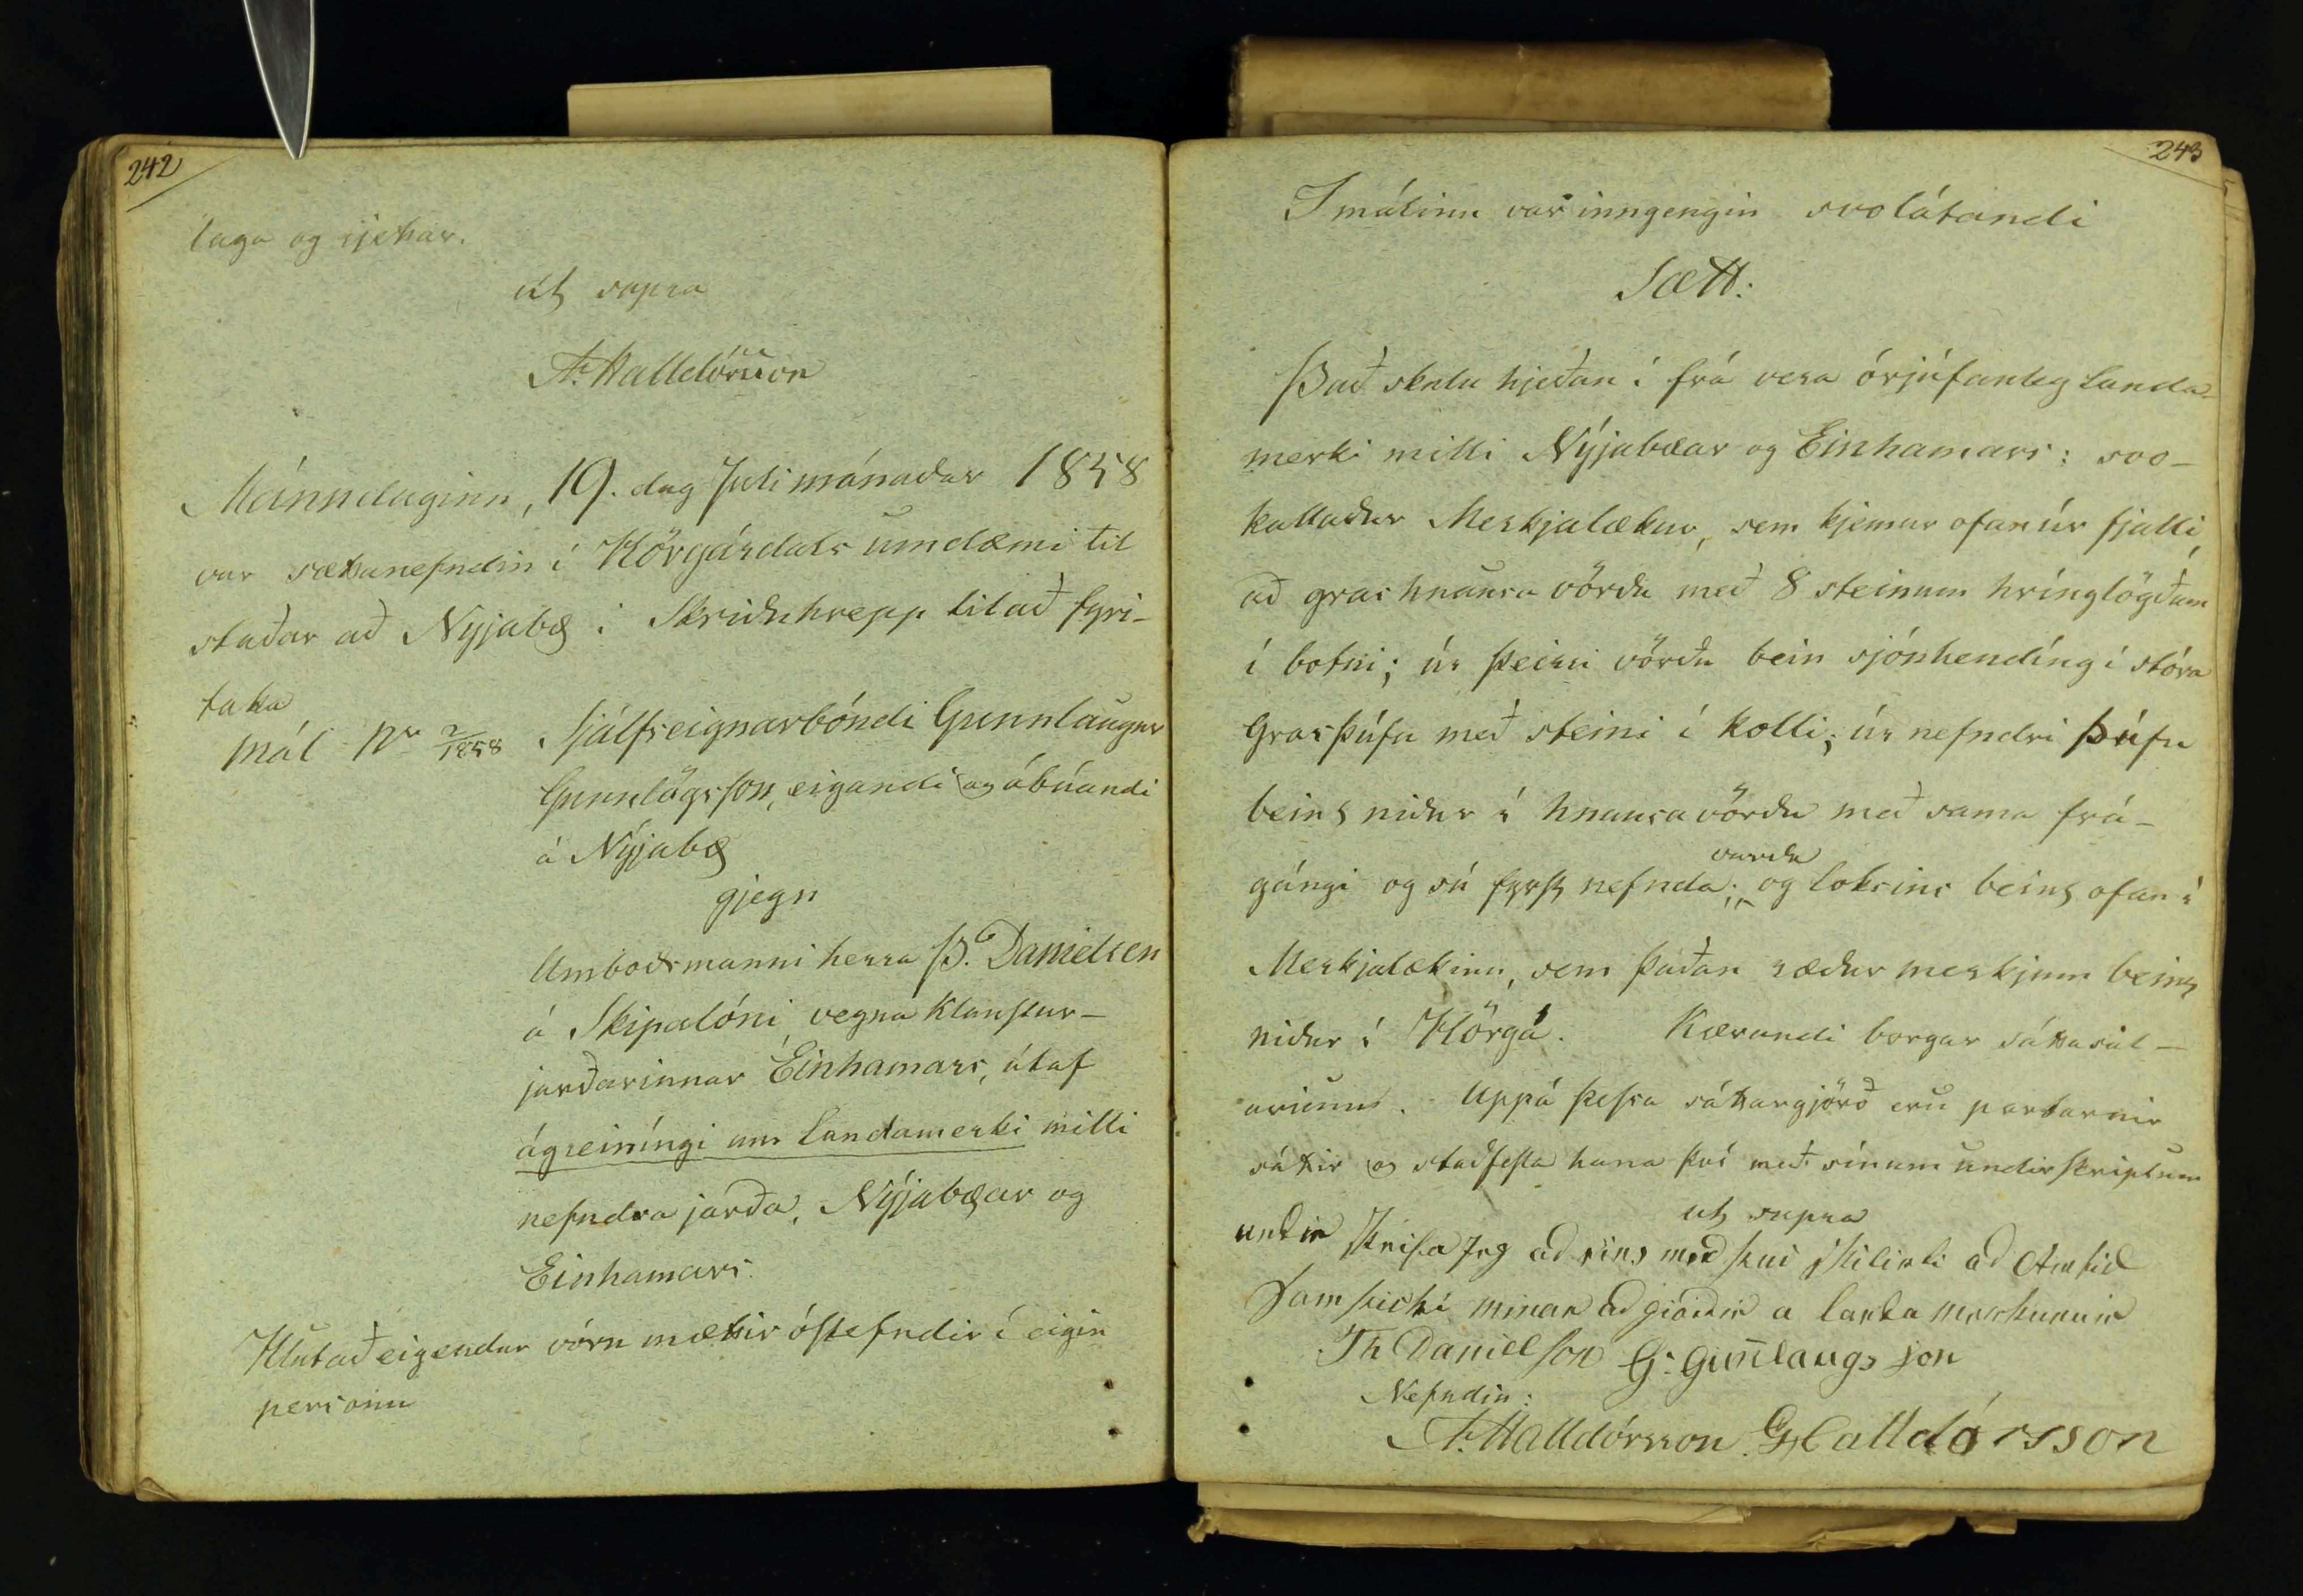 242
laga og rjettar.
ut supra
A. Halldórsson
Mánudaginn, 19. dag Juli mánaðar 1858
var sættanefndin í Hörgárdals umdæmi til
staðar að Nýjabæ í Skriðuhrepp til að fyri-
taka
Mál Nr 2/1858 Sjálfseignarbóndi Gunnlaugur
Gunnlögsson, eigandi og ábúandi
á Nýjabæ
gjegn
Umboðsmanni herra Þ. Danielsen
á Skipalóni vegna Klaustur-
jarðarinnar Einhamars, útaf
ágreiníngi um landamerki milli
nefndra jarða, Nýjabæar og
Einhamars.
Hlutaðeigendur vóru mættir óstefndir í eigin
personu
243
I málinu var inngengin svolátandi
Sætt:
Það skulu hjeðan í frá vera órjúfanleg landa-
merki milli Nýjabæar og Einhamars: svo-
kallaður Merkjalækur, sem kjemur ofan úr fjalli,
að grashnausa vörðu með 8 steinum hrínglögðum
í botni; úr þeirri vörðu bein sjónhendíng í stóra
Grasþúfu með steini í kolli; úr nefndri þúfu
beint niður í hnausavörðu með sama frá-
gángi og sú fyrst nefnda varða; og loksins beint ofan í
Merkjalækinn, sem þaðan ræður merkjum beint
niður í Hörgá. Kærandi borgar sáttasal-
arium. Uppá þessa sáttargjörð eru partarnir
sáttir og staðfesta hana því með sínum undirskriptum
ut supra
undir skrifa Jeg að eins með þvi skilirdi ad Amtid
Samþicki minar ad giördir a landa merkunum
Th Danielson G. Gunnlaugsson
Nefndin:
A. Halldórsson G Halldórsson